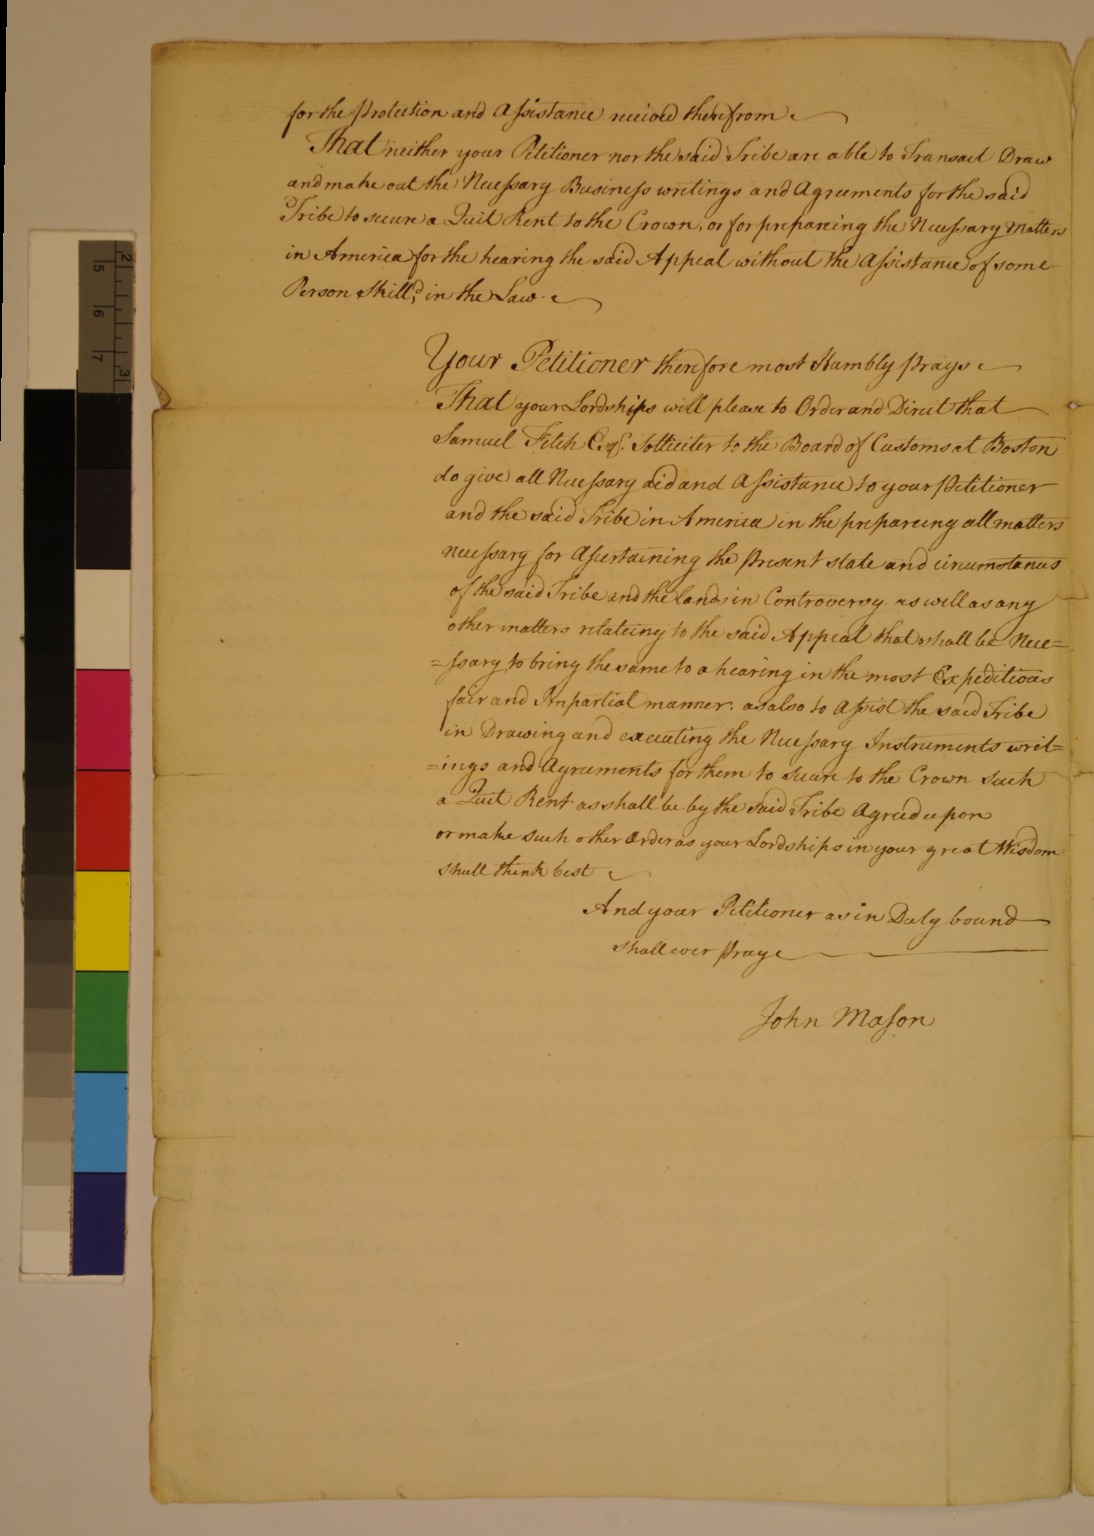 for the Protection and Assistance received therefrom
That neither your Petitioner nor the said Tribe are able to Transact Draw
and make out the Necessary Business writings and Agreements for the said
Tribe to secure a Quit Rent to the Crown, or for prepareing the Necessary Matters
in America for the hearing the said Appeal without the Assistance of some
Person Skill,d in the Law.
Your Petitioner therefore most Humbly Prays
That your Lordships will please to Order and Direct that
Samuel Fitch Esqr. Solliciter to the Board of Customs at Boston
do give all Necessary aid and Assistance to your Petitioner
and the said Tribe in America in the prepareing all matters
necessary for Assertaining the Present state and circumstances
of the said Tribe and the Lands in Controversy as well as any
other matters relateing to the said Appeal that shall be Nece=
=ssary to bring the same to a hearing in the most Expeditious
fair and Impartial manner. as also to Assist the said Tribe
in Drawing and executing the Necessary Instruments writ=
=ings and Agreements for them to secure to the Crown such
a Quit Rent as shall be by the said Tribe Agreed upon
or make such other Order as your Lordships in your great Wisdom
shall think best
And your Petitioner as in Duty bound
shall ever Pray
John Mason
5 6 7
2 3